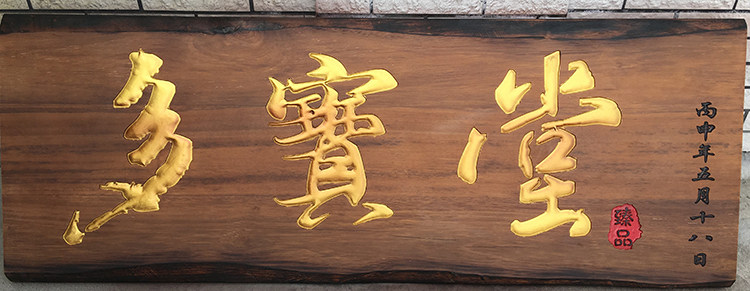 多寶堂
丙申年五月十八日
臻品